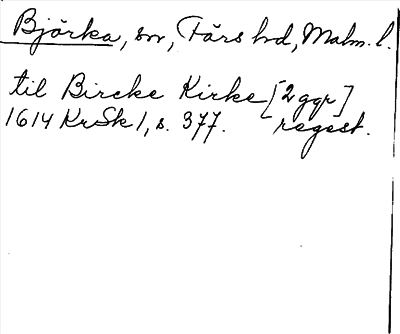 Björka, sn, Färs hd, Malm. l.
til Bircke Kirke [2 ggr]
1614 KrSk 1, s. 377. regest.